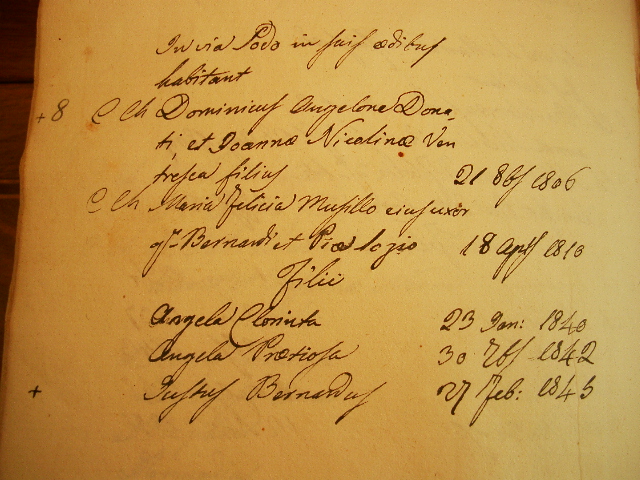 In via Podo in suis ædibus
habitant
+ 8 C Ch Dominicus Angelone Dona-
ti, et Joannæ Nicolinæ Ven
tresca filius 21 8bs 1806
C Ch Maria Felicia Musillo ejus uxor
qm Bernardi et Pict lozio 18 Aprs 1810
Filii
Angela Clorinta 23 Jan: 1840
Angela Prætiosa 30 7bs 1842
+ Justus Bernardus 27 Feb: 1845